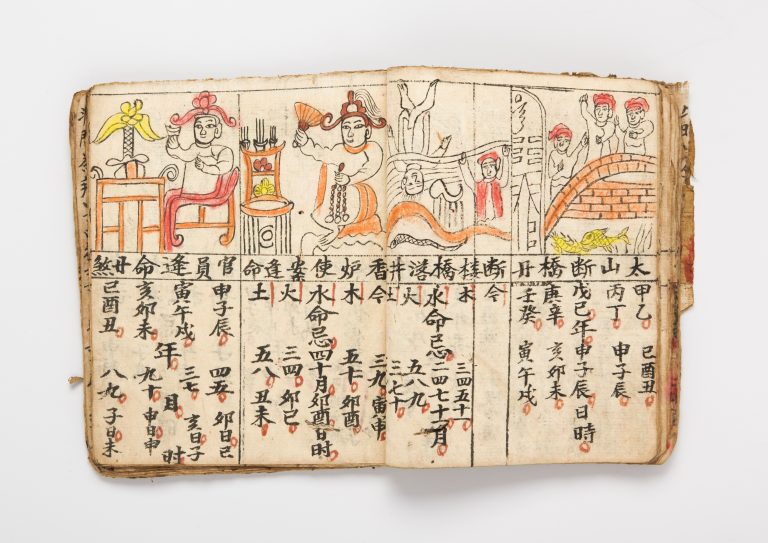 太山断橋丹
甲乙 己酉丑
丙丁 申子辰
戊己年申子辰日時
庚辛 亥卯未
壬癸 寅午戌
断橋井
今
木 三四五十
水命忌二四七十一月
火 五八九
土 三七十
香炉使案逢命
今 三九寅申
木 卯酉
水命忌四十月卯酉日时
火 三四卯巳
土 五八丑未
官員逢命廿煞
申子辰 四五 卯日巳
寅午戌 三七 亥日子
年月时
亥卯未 九十 申日申
己酉丑 八九 子日未